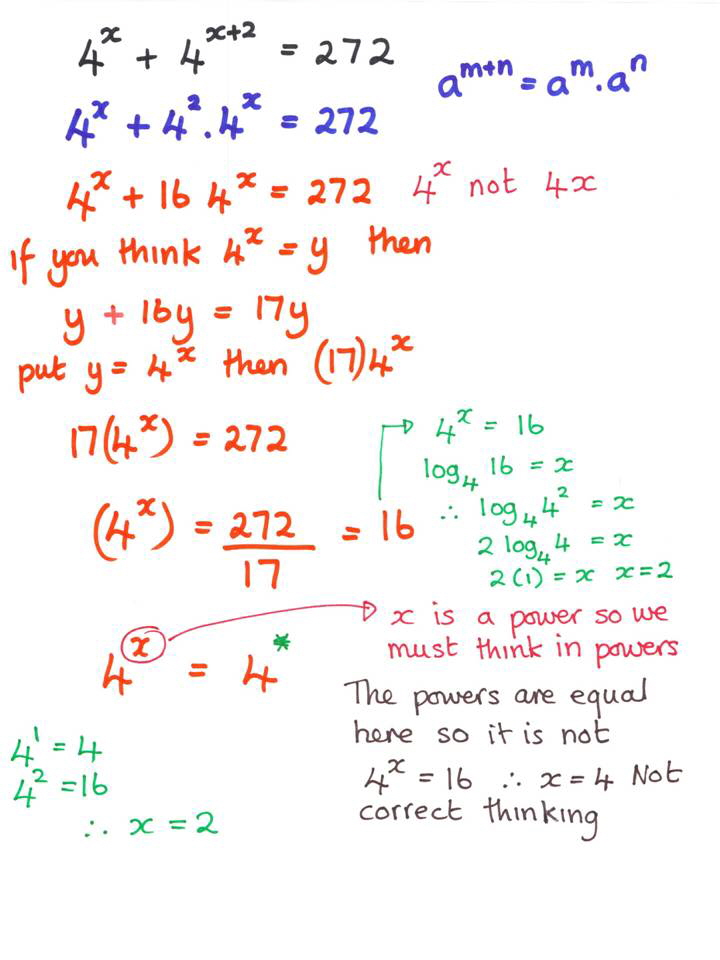 4^x + 4^(x+2) = 272
a^(m+n) = a^m . a^n
4^x + 4^2 . 4^x = 272
4^x + 16 4^x = 272
4^x not 4x
if you think 4^x = y then
y + 16y = 17y
put y = 4^x then (17)4^x
17(4^x) = 272
(4^x) = 272/17 = 16
4^x = 16
log_4 16 = x
∴ log_4 4^2 = x
2 log_4 4 = x
2(1) = x x=2
4^x = 4^*
x is a power so we
must think in powers
The powers are equal
here so it is not
4^x = 16 ∴ x = 4 Not
correct thinking
4^1 = 4
4^2 = 16
∴ x = 2